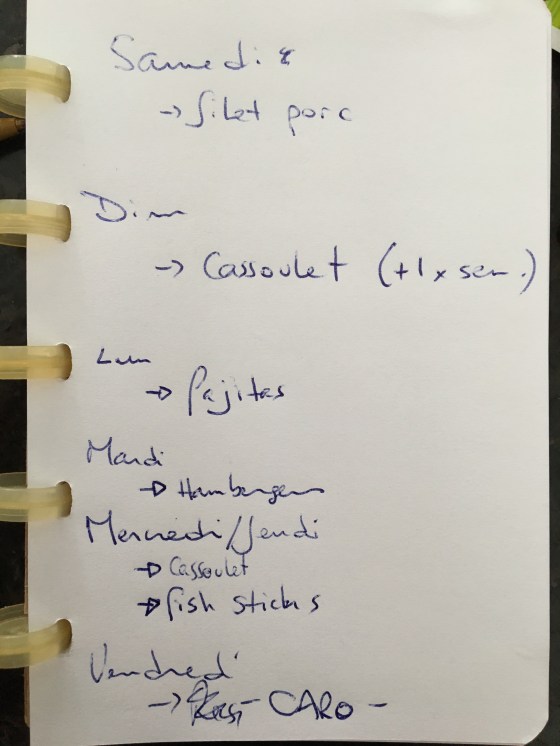 Samedi
→ filet porc
Dim
→ Cassoulet (+1 x sem.)
Lun
→ fajitas
Mardi
→ Hamburgers
Mercredi/Jeudi
→ Cassoulet
→ fish sticks
Vendredi
→ CARO -